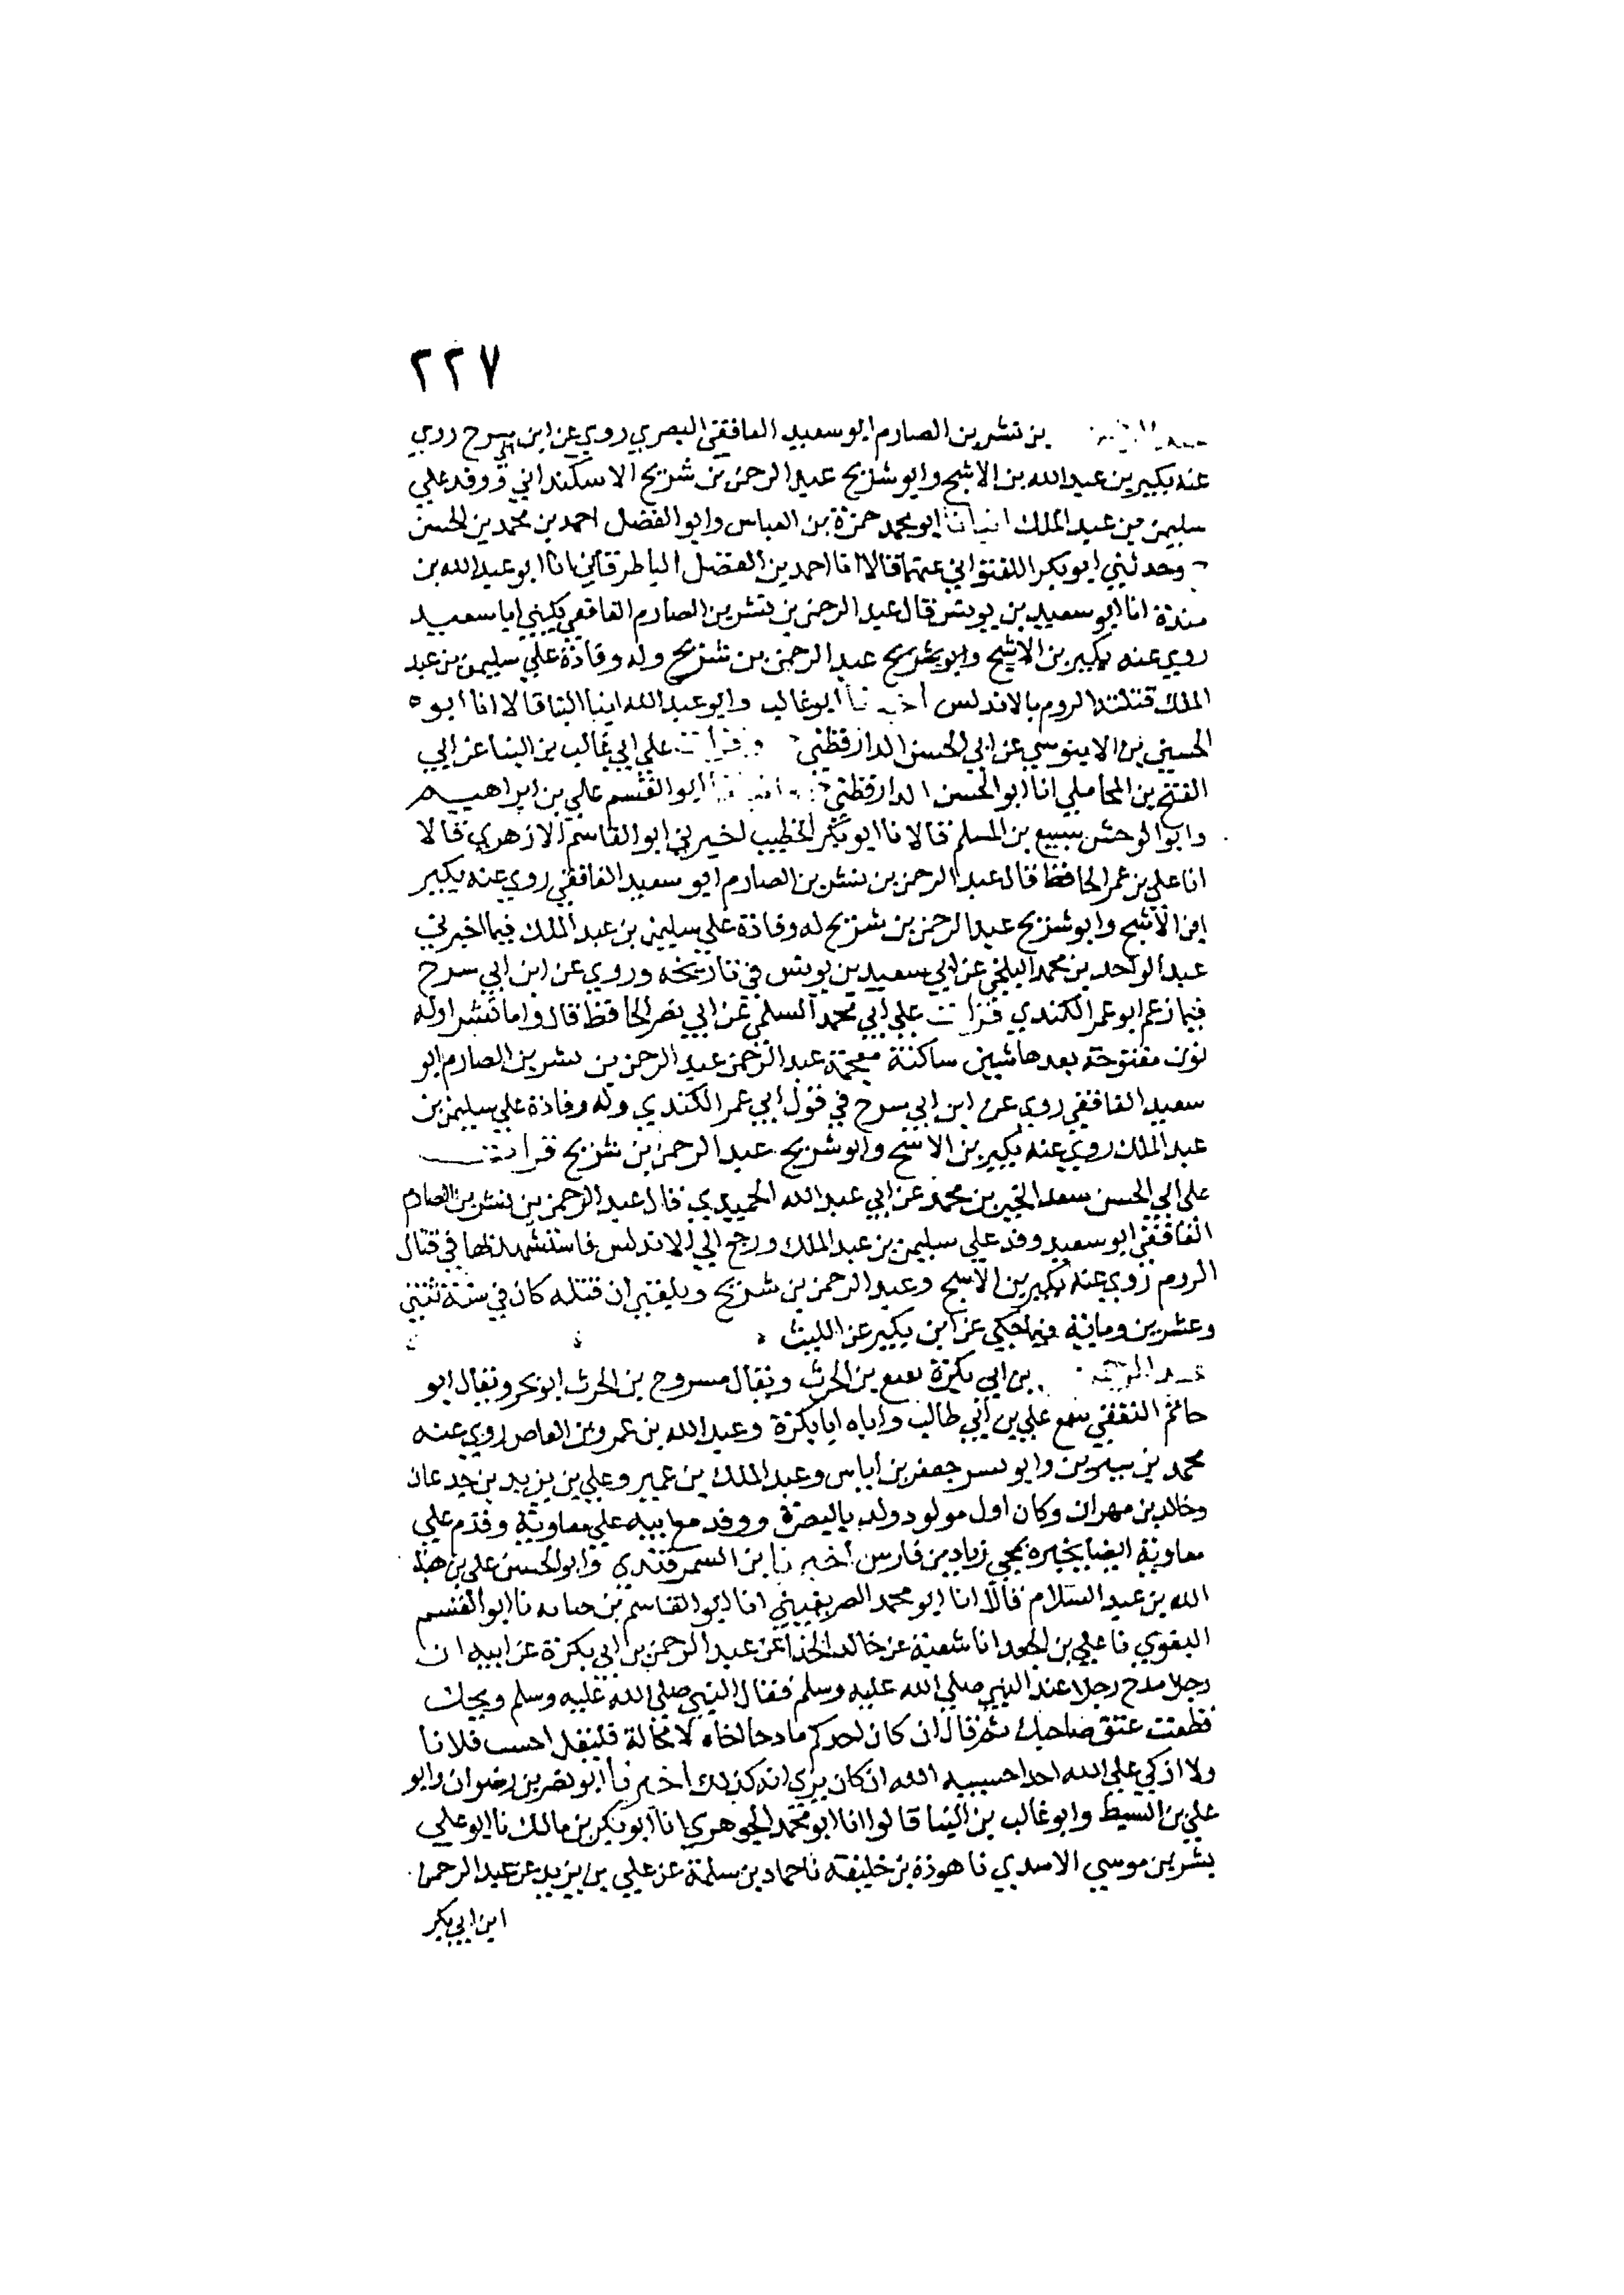 ٢٢٧
بن نشر بن الصارم ابو سعيد الغافقي البصري روي عن ابن ابي سرح روي
عنه بكير بن عبد الله بن الاشج وابو شريح عبد الرحمن بن شريح الاسكندراني ووفد علي
سليمن بن عبد الملك انبانا ابو محمد حمزة بن العباس وابو الفضل احمد بن محمد بن الحسن
وحدثني ابو بكر اللفتواني عنهما قالا انا احمد بن الفضل الباطرقاني انا ابو عبد الله بن
مندة انا ابو سعيد بن يونس قال عبد الرحمن بن نشر بن الصارم الغافقي يكني ابا سعيد
روي عنه بكير بن الاشج وابو شريح عبد الرحمن بن شريح وله وفادة علي سليمن بن عبد
الملك قتلته الروم بالاندلس اخبرنا ابو غالب وابو عبد الله ابنا البنا قالا انا ابو
الحسين بن الابنوسي عن ابي الحسن الدارقطني وقرات علي ابي غالب بن البنا عن ابي
الفتح بن المحاملي انا ابو الحسن الدارقطني واخبرنا ابو القسم علي بن ابراهيم
وابو الوحش سبيع بن المسلم قالا نا ابو بكر الخطيب اخبرني ابو القاسم الازهري قالا
انا علي بن عمر الحافظ قال عبد الرحمن بن نشر بن الصارم ابو سعيد الغافقي روي عنه بكير
ابن الاشج وابو شريح عبد الرحمن بن شريح له وفادة علي سليمن بن عبد الملك فيما اخبرني
عبد الواحد بن محمد البلخي عن ابي سعيد بن يونس في تاريخه وروي عن ابن ابي سرح
فيما زعم ابو عمر الكندي قرات علي ابي محمد السلمي عن ابي نصر الحافظ قال واما نشر اوله
نون مفتوحة بعدها شين ساكنة معجمة عبد الرحمن عبد الرحمن بن نشر بن الصارم ابو
سعيد الغافقي روي عن ابن ابي سرح في قول ابي عمر الكندي وله وفادة علي سليمن بن
عبد الملك روي عنه بكير بن الاشج وابو شريح عبد الرحمن بن شريح قرات
علي ابي الحسن سعد الخير بن محمد عن ابي عبد الله الحميدي قال عبد الرحمن بن نشر بن الصارم
الغافقي ابو سعيد وفد علي سليمن بن عبد الملك ورجع الي الاندلس فاستشهد بها في قتال
الروم روي عنه بكير بن الاشج وعبد الرحمن بن شريح وبلغني ان قتله كان في سنة ثنتي
وعشرين وماية فيما حكي عن ابن بكير عن الليث
بن ابي بكرة نفيع بن الحرث ويقال مسروح بن الحرث ابو بحر ويقال ابو
حاتم الثقفي سمع علي بن ابي طالب واباه ابا بكرة وعبد الله بن عمرو بن العاص روي عنه
محمد بن سيرين وابو بسر جعفر بن اياس وعبد الملك بن عمير وعلي بن يزيد بن جدعان
وخالد بن مهران وكان اول مولود ولد بالبصرة ووفد مع ابيه علي معاوية وقدم علي
معاوية ايضا يخبره بمجي زياد من فارس اخبرنا بن السمرقندي وابو الحسن علي بن هبة
الله بن عبد السلام قالا انا ابو محمد الصريفيني انا ابو القاسم بن حبابه نا ابو القسم
البغوي نا علي بن الجعد انا شعبة عن خالد الحذا عن عبد الرحمن بن ابي بكرة عن ابيه ان
رجلا مدح رجلا عند النبي صلي الله عليه وسلم فقال النبي صلي الله عليه وسلم ويحك
قطعت عنق صاحبك ثم قال ان كان احدكم مادحا اخاه لا محالة فليقل احسب فلانا
ولا ازكي علي الله احدا حسيبه الله ان كان يري انه كذلك اخبرنا ابو نصر بن رضوان وابو
علي بن السبط وابو غالب بن البنا قالوا انا ابو محمد الجوهري انا ابو بكر بن مالك نا ابو علي
بشر بن موسي الاسدي نا هوذة بن خليفة نا حماد بن سلمة عن علي بن يزيد عن عبد الرحمن
ابن ابي بكر